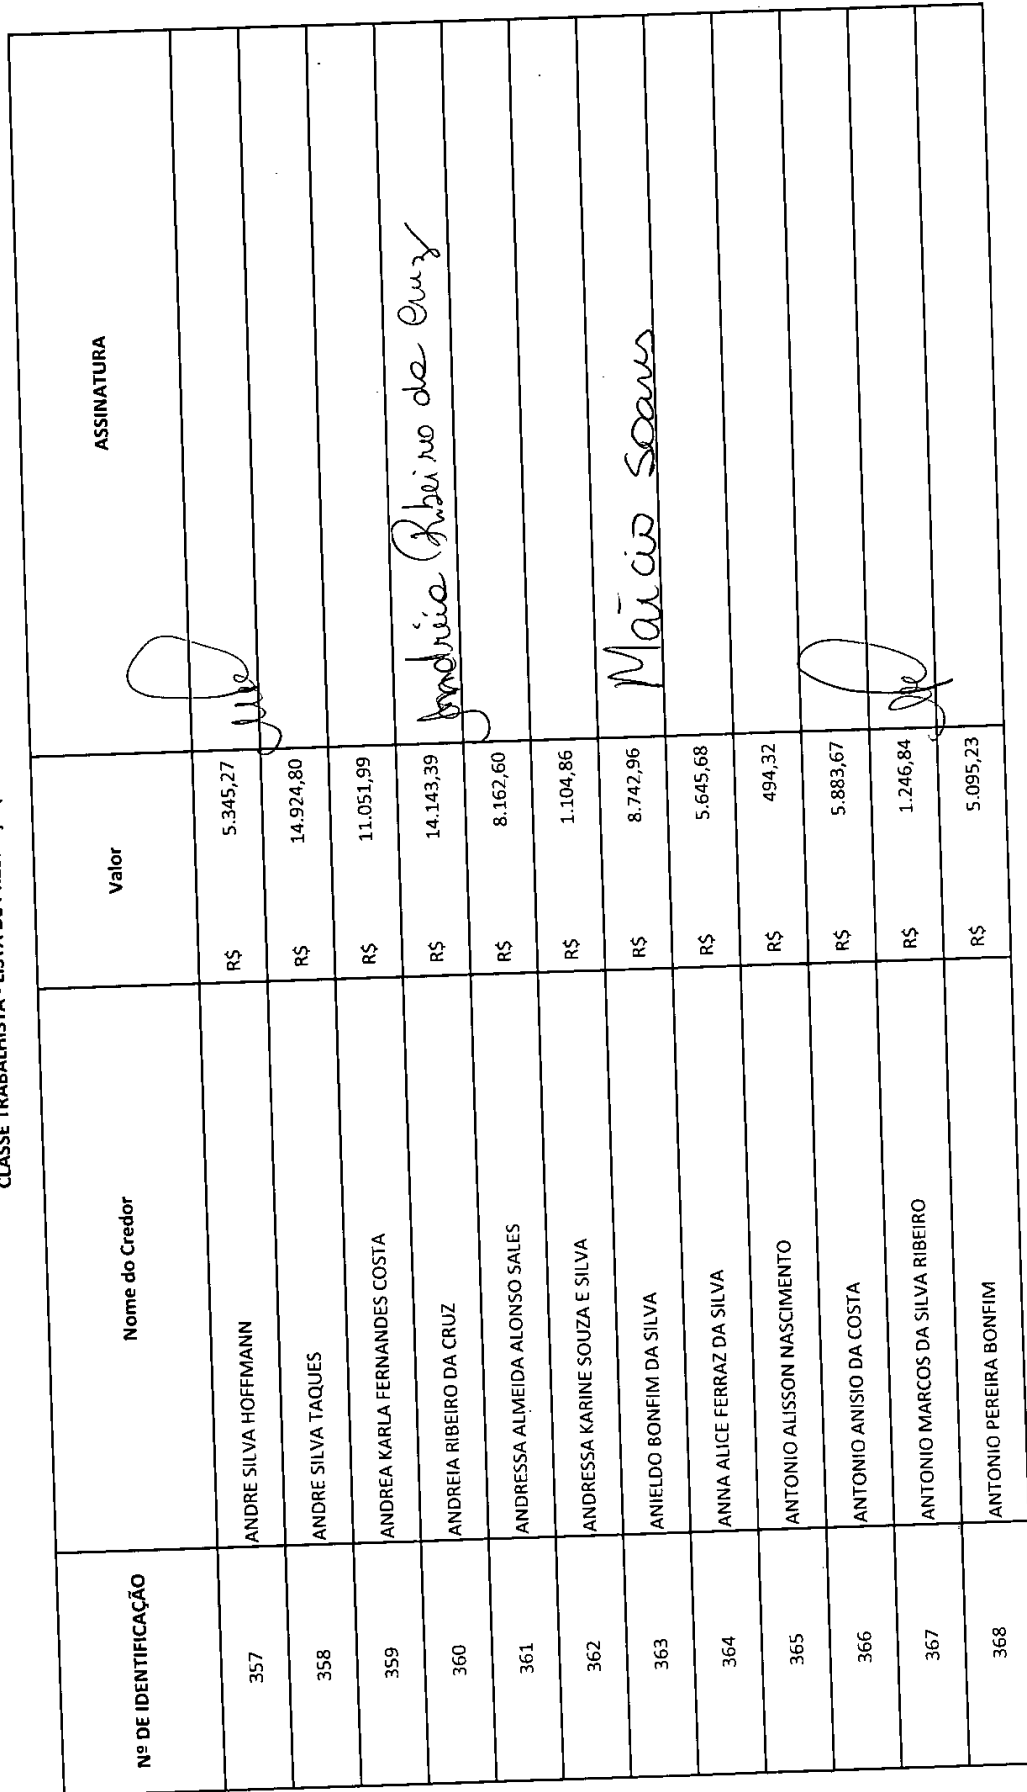 CLASSE TRABALHISTA - LISTA DE
Nº DE IDENTIFICAÇÃO Nome do Credor Valor ASSINATURA
357 ANDRE SILVA HOFFMANN R$ 5.345,27
358 ANDRE SILVA TAQUES R$ 14.924,80
359 ANDREA KARLA FERNANDES COSTA R$ 11.051,99
360 ANDREIA RIBEIRO DA CRUZ R$ 14.143,39 Andréia Ribeiro da Cruz
361 ANDRESSA ALMEIDA ALONSO SALES R$ 8.162,60
362 ANDRESSA KARINE SOUZA E SILVA R$ 1.104,86
363 ANIELDO BONFIM DA SILVA R$ 8.742,96 Márcio Soares
364 ANNA ALICE FERRAZ DA SILVA R$ 5.645,68
365 ANTONIO ALISSON NASCIMENTO R$ 494,32
366 ANTONIO ANISIO DA COSTA R$ 5.883,67
367 ANTONIO MARCOS DA SILVA RIBEIRO R$ 1.246,84
368 ANTONIO PEREIRA BONFIM R$ 5.095,23